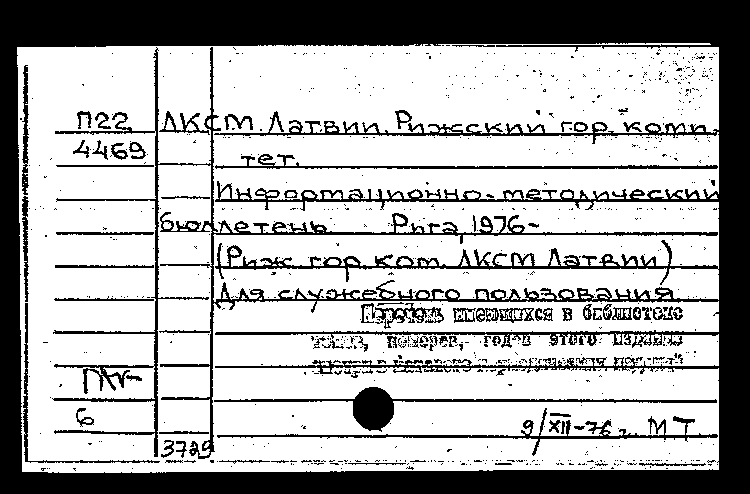 П22 ЛКСМ Латвии. Рижский гор. коми-
4469 тет.
Информационно-методический
бюллетень Рига, 1976-
(Риж. гор. ком. ЛКСМ Латвии)
Для служебного пользования.
Перечень имеющихся в библиотеке
номеров, годов этого издания
6
9/XII-76 г. МТ
3729